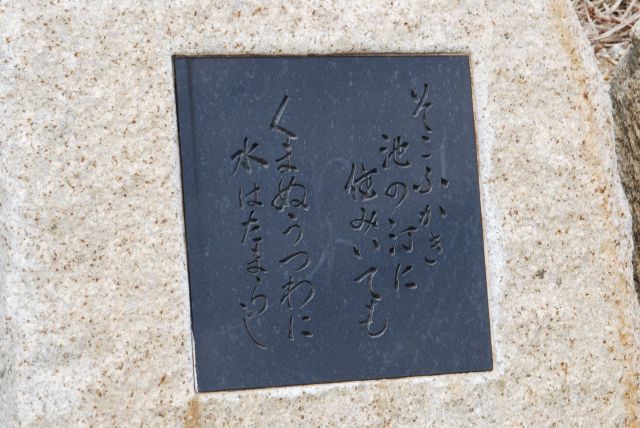 そこふかき
池の汀に
住みいても
くまぬうつわに
水はたまらじ